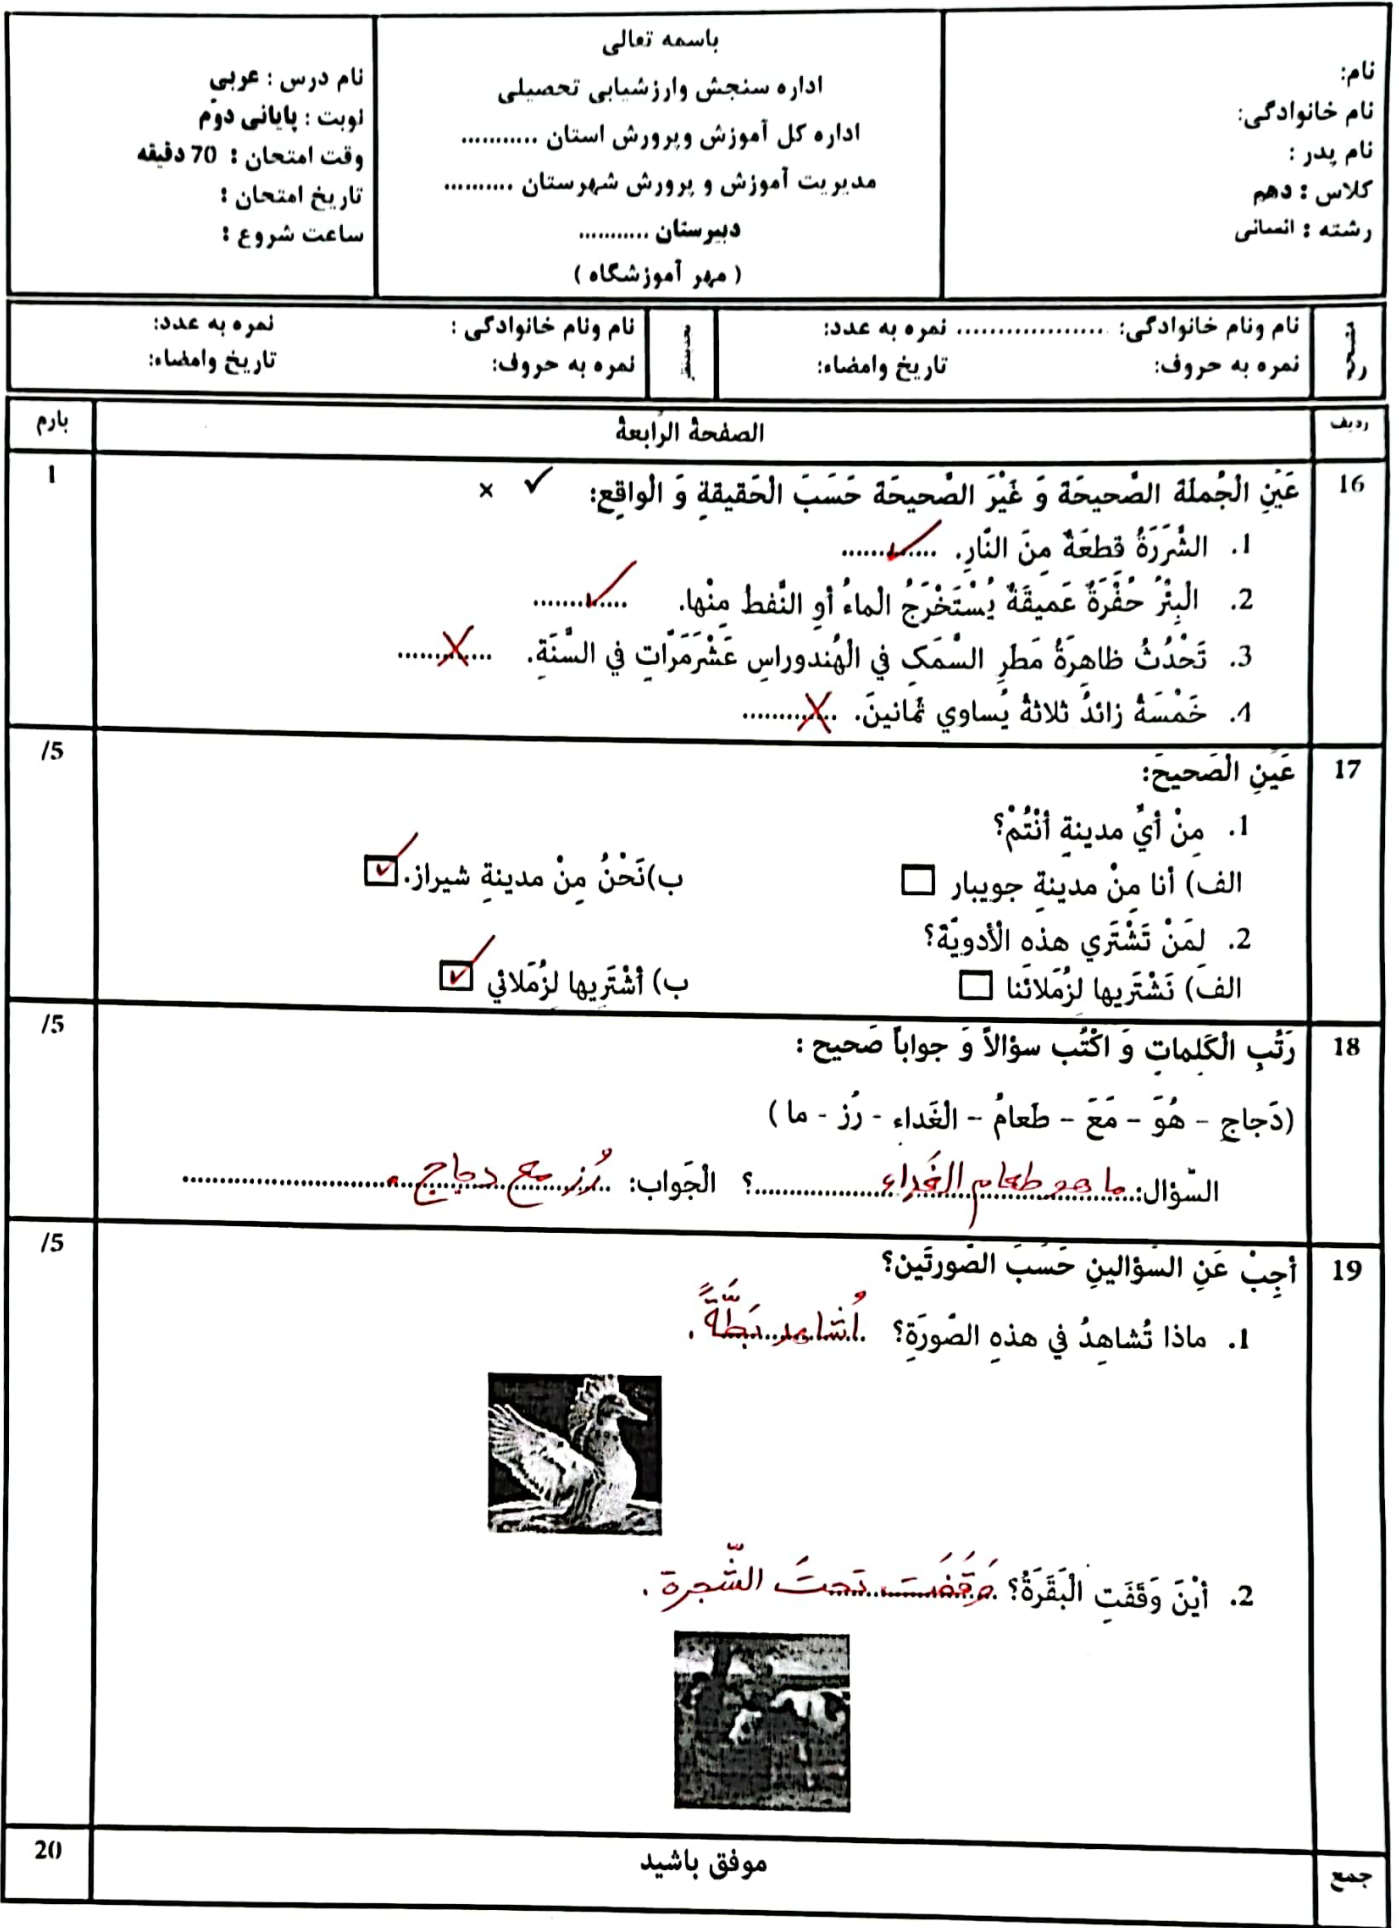 نام:
نام خانوادگی:
نام پدر :
کلاس : دهم
رشته : انسانی
باسمه تعالی
اداره سنجش وارزشیابی تحصیلی
اداره کل آموزش وپرورش استان ...........
مدیریت آموزش و پرورش شهرستان ..........
دبیرستان ...........
( مهر آموزشگاه )
نام درس : عربی
نوبت : پایانی دوّم
وقت امتحان : 70 دقیقه
تاریخ امتحان :
ساعت شروع :
نام ونام خانوادگی: .................. نمره به عدد:
نمره به حروف: تاریخ وامضاء:
نام ونام خانوادگی : نمره به عدد:
نمره به حروف: تاریخ وامضاء:
ردیف الصفحة الرّابعة بارم
16 عَیِّنِ الْجُملَةَ الصَّحیحَةَ وَ غَیْرَ الصَّحیحَةَ حَسَبَ الْحَقیقةِ وَ الْواقِعِ: ✓ × 1
1. الشَّرَرَةُ قِطعَةٌ مِنَ النّارِ. ............. ✓
2. الْبِئْرُ حُفْرَةٌ عَمیقَةٌ یُسْتَخْرَجُ الْماءُ أوِ النَّفطُ مِنْها. ............. ✓
3. تَحْدُثُ ظاهِرَةُ مَطَرِ السَّمَکِ في الْهُندوراسِ عَشْرَمَرّاتٍ في السَّنَةِ. ............. ×
4. خَمْسَةُ زائدُ ثلاثةُ یُساوي ثَمانینَ. ............. ×
17 عَیِّنِ الْصَحیحَ: /5
1. مِنْ أيِّ مدینةٍ أنْتُمْ؟
الف) أنا مِنْ مدینةِ جویبار □ ب)نَحْنُ مِنْ مدینةِ شیراز. ☑
2. لِمَنْ تَشْتَري هذه الْأدویَّةَ؟
الف) نَشْتَریها لِزُمَلائَنا □ ب) أشْتَریها لِزُمَلائي ☑
18 رَتِّبِ الْکَلِماتِ وَ اکْتُب سؤالاً وَ جواباً صَحیح : /5
(دَجاجِ - هُوَ - مَعَ - طَعامُ - الْغَداءِ - رُز - ما )
السّؤال: ما هو طعام الغَداء ؟ الْجَواب: رُز مع دجاج .
19 أجِبْ عَنِ السّؤالینِ حَسَبَ الصّورتَین؟ /5
1. ماذا تُشاهِدُ في هذهِ الصّورَةِ؟ أُشاهد بَطَّةً .
2. أیْنَ وَقَفَتِ الْبَقَرَةُ؟ وَقَفَت تَحتَ الشّجرة .
جمع موفق باشید 20